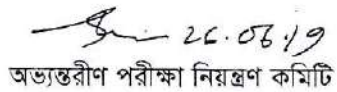 26.06.19
অভ্যন্তরীণ পরীক্ষা নিয়ন্ত্রণ কমিটি